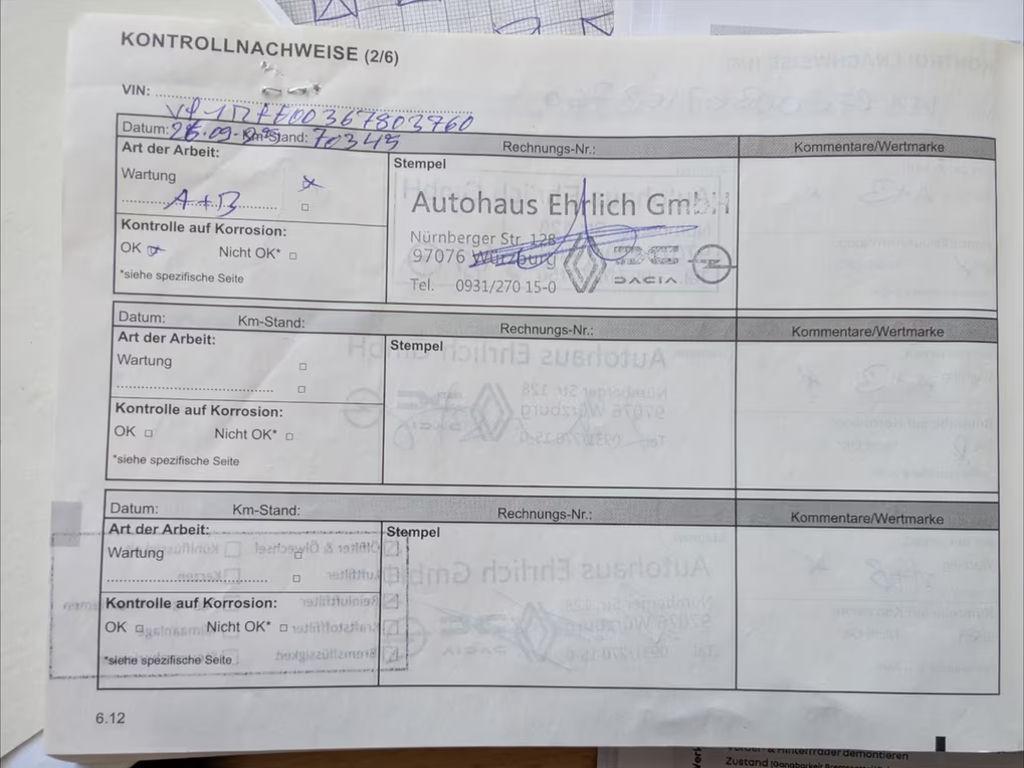 KONTROLLNACHWEISE (2/6)
VIN:
Datum: Km-Stand: 70345 Rechnungs-Nr.: Kommentare/Wertmarke
Art der Arbeit: Stempel
Wartung x
A+B
Kontrolle auf Korrosion:
OK Nicht OK*
*siehe spezifische Seite
Autohaus Ehrlich GmbH
Nürnberger Str. 128
97076 Würzburg
Tel. 0931/270 15-0
DACIA
Datum: Km-Stand: Rechnungs-Nr.: Kommentare/Wertmarke
Art der Arbeit: Stempel
Wartung
Kontrolle auf Korrosion:
OK Nicht OK*
*siehe spezifische Seite
Datum: Km-Stand: Rechnungs-Nr.: Kommentare/Wertmarke
Art der Arbeit: Stempel
Wartung
Kontrolle auf Korrosion:
OK Nicht OK*
*siehe spezifische Seite
6.12
demontieren
Zustand